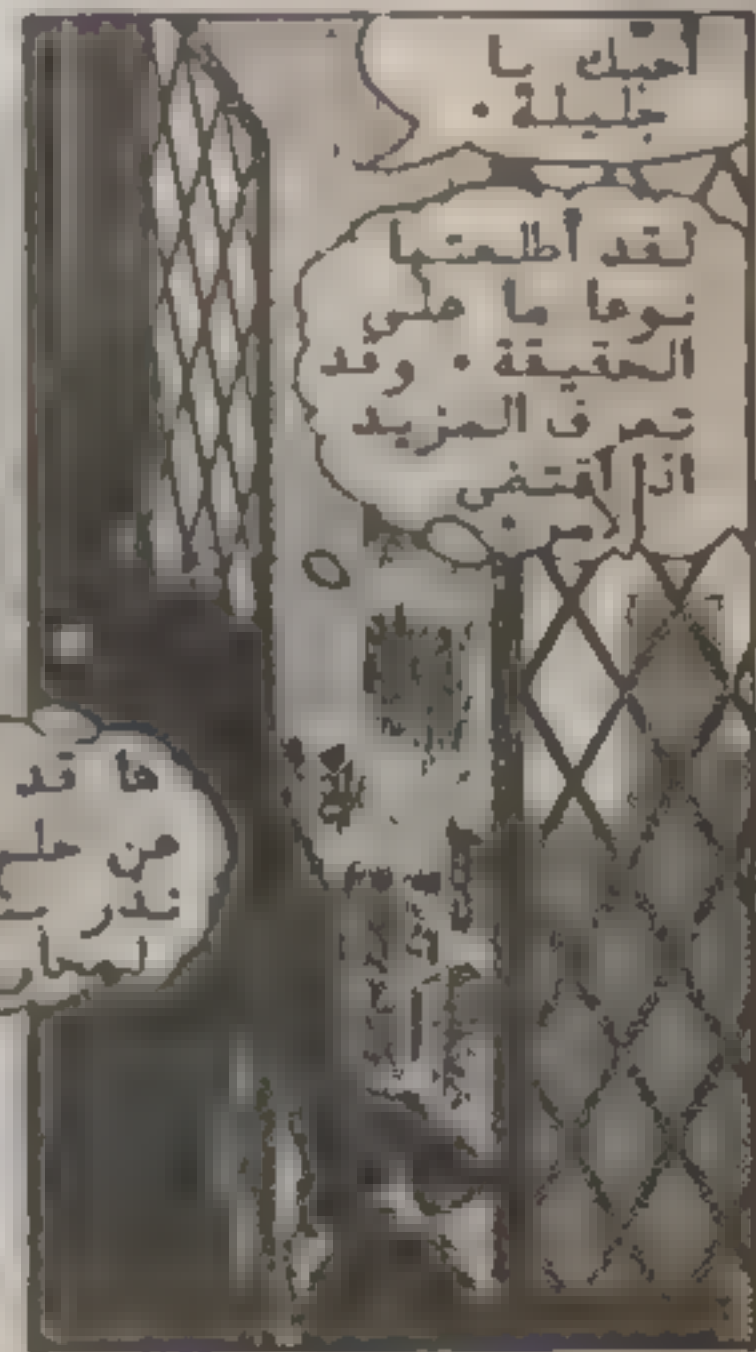 أحبك يا
جليلة .
لقد أطلعتها
نوعا ما على
الحقيقة . وقد
تعرف المزيد
اذا أقتضى
ها قد
من
نذر